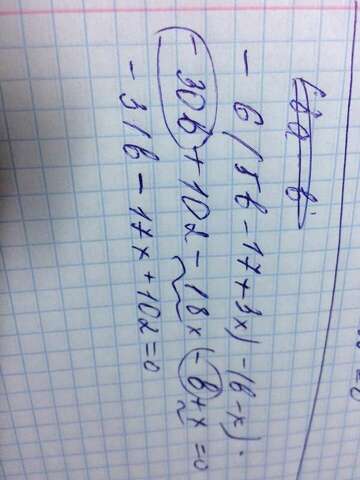 -6(5b-17+3x)-(b-x)·
-30b+102-18x-b+x=0
-31b-17x+102=0